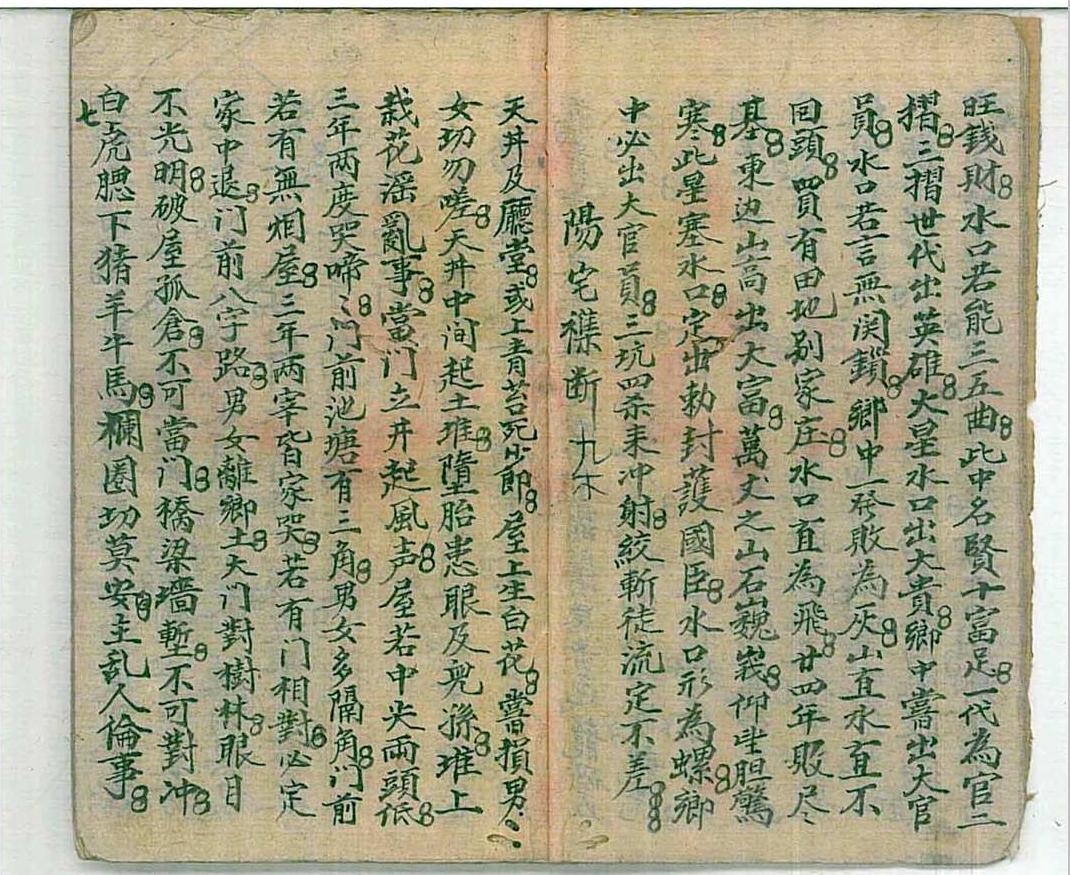 旺錢財水口若能三五曲此中名賢十富足一代為官二
摺三摺世代出英雄大星水口出大貴鄉中嘗出大官
員水口若言無関鎖鄉中一發敗為灰山直水直不
回頭買有田地别家庄水口直為飛廿四年敗尽
基東边山高出大富萬丈之山石巍峩仰坐胆驚
寒此星塞水口定出勅封護國臣水口形為螺鄉
中必出大官員三坑四杀来冲射絞斬徒流定不差
陽宅襍断 九木
天井及廳堂或上青苔死少郎屋上生白花嘗損男々
女切勿嗟天井中间起土堆墮胎患眼及兒孫堆上
栽花滛亂事當门立井起風声屋若中尖兩頭低
三年两度哭啼々门前池塘有三角男女多隔角门前
若有無烟屋三年两宰皆家哭若有门相對必定
家中退门前八字路男女離鄉土大门對樹林眼目
不光明破屋孤倉不可當门橋梁墻塹不可對冲
白虎腮下猪羊牛馬欄圈切莫安主乱人倫事
七